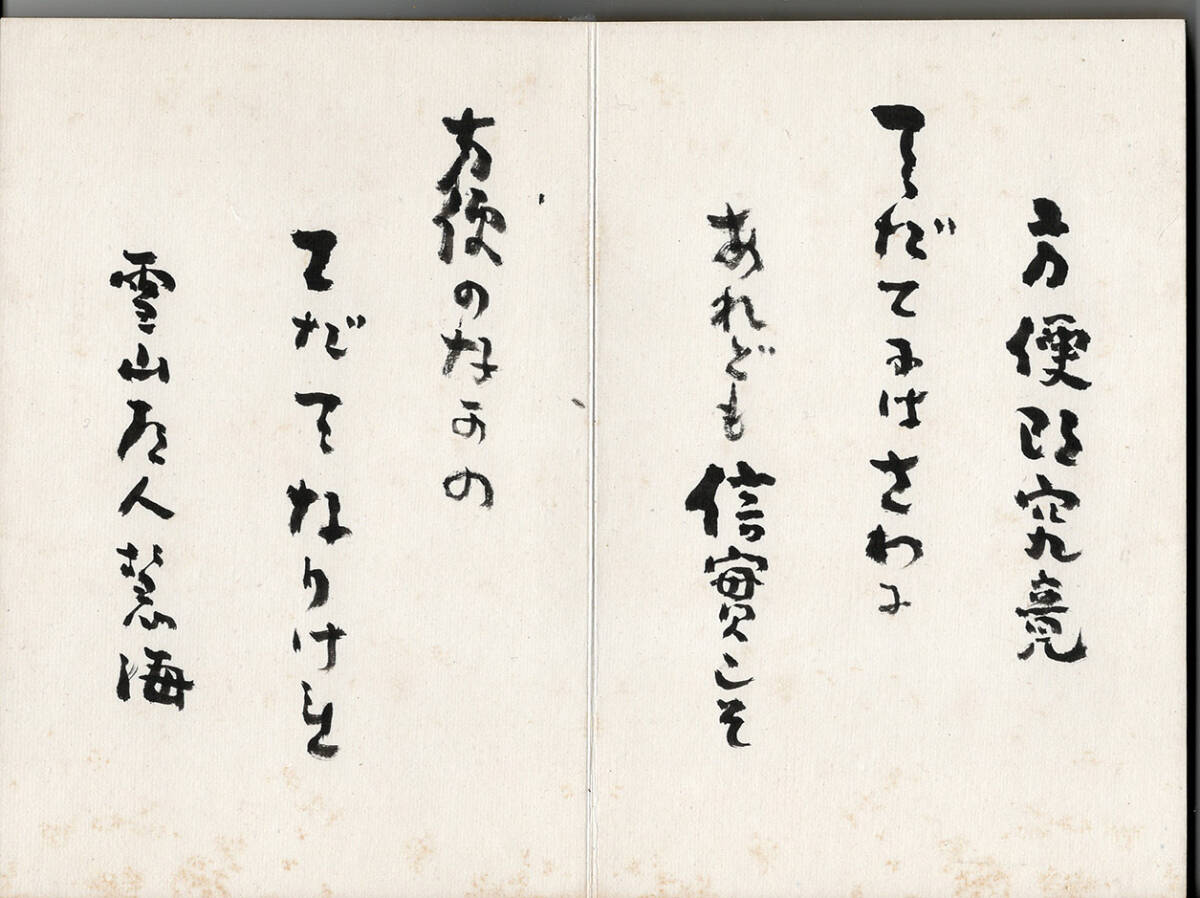 方便即究竟
てだてにはさわに
あれども信實こそ
方便のなかの
てだてなりけれ
雪山道人慧海